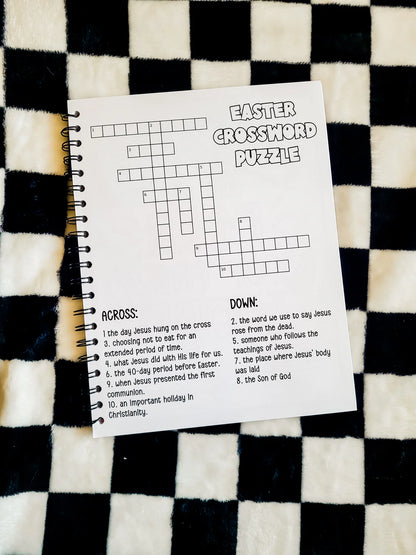 EASTER
CROSSWORD
PUZZLE
1
2
3
4
5
6
7
8
9
10
ACROSS:
1 the day Jesus hung on the cross
3. choosing not to eat for an
extended period of time.
4. what Jesus did with His life for us.
6. the 40-day period before Easter.
9. when Jesus presented the first
communion.
10. an important holiday in
Christianity.
DOWN:
2. the word we use to say Jesus
rose from the dead.
5. someone who follows the
teachings of Jesus.
7. the place where Jesus' body
was laid
8. the Son of God